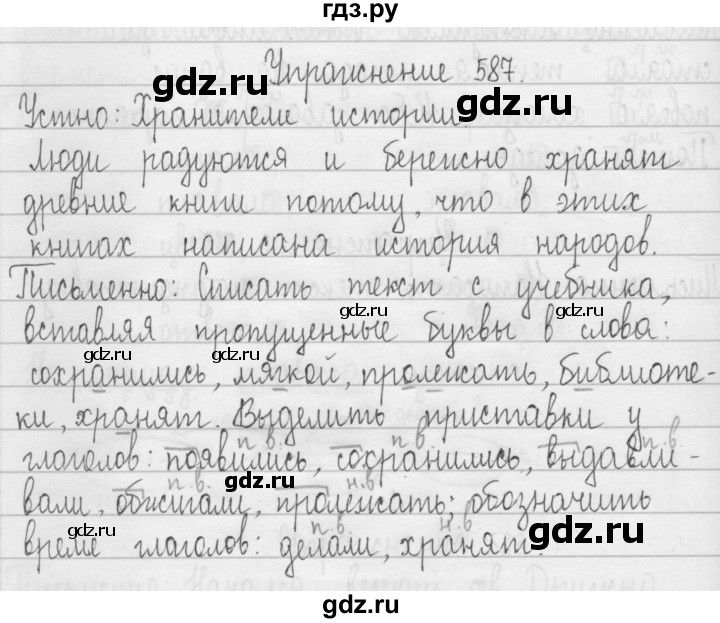 гдз.ру
gdz.ru
gdz.ru
Упражнение 587.
gdz.ru
Устно: Хранители истории.
Люди радуются и бережно хранят
древние книги потому, что в этих
книгах написана история народов.
Письменно: Списать текст с учебника,
gdz.ru
вставляя пропущенные буквы в слова:
gdz.ru gdz.ru
сохранились, мягкой, пролежать, библиоте-
ки, хранят. Выделить приставки у
п.в. п.в. п.в.
глаголов: появились, сохранились, выдавли-
п.в. н.в.
gdz.ru gdz.ru
вали, обжигали, пролежать; обозначить
п.в. н.в.
gdz.ru
время глаголов: делали, хранят.
gdz.ru
gdz.ru